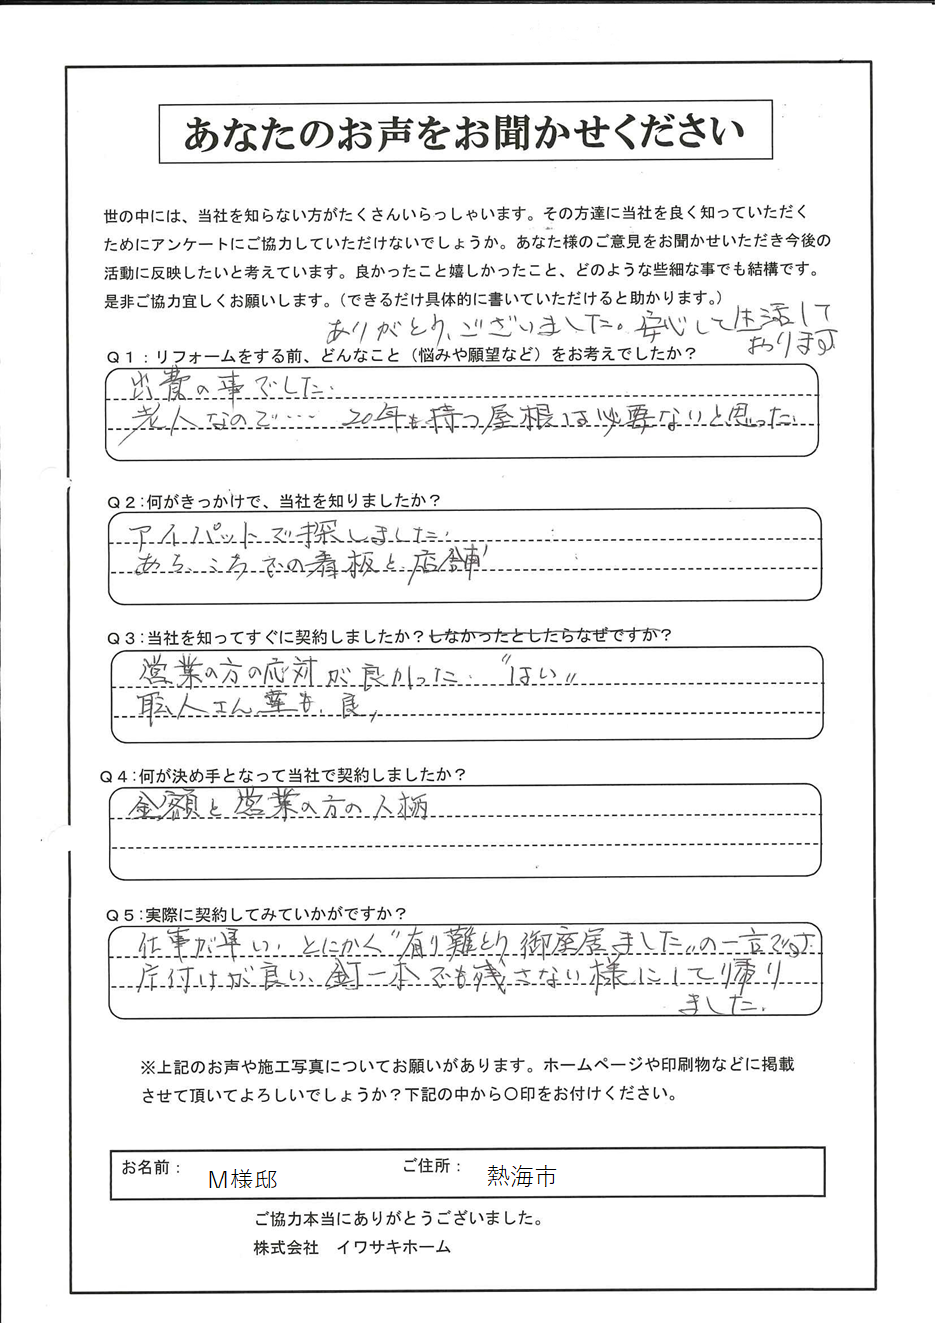 あなたのお声をお聞かせください
世の中には、当社を知らない方がたくさんいらっしゃいます。その方達に当社を良く知っていただく
ためにアンケートにご協力していただけないでしょうか。あなた様のご意見をお聞かせいただき今後の
活動に反映したいと考えています。良かったこと嬉しかったこと、どのような些細な事でも結構です。
是非ご協力宜しくお願いします。（できるだけ具体的に書いていただけると助かります。）
ありがとうございました。安心して生活して
おります
Ｑ１：リフォームをする前、どんなこと（悩みや願望など）をお考えでしたか？
出費の事でした.
老人なので…… 20年も持つ屋根は必要ないと思った.
Ｑ２：何がきっかけで、当社を知りましたか？
アイパットで探しました.
あちこちでの看板と店舗
Ｑ３：当社を知ってすぐに契約しましたか？しなかったとしたらなぜですか？
営業の方の応対が良かった. "はい"
職人さん 良
Ｑ４：何が決め手となって当社で契約しましたか？
金額と営業の方の人柄
Ｑ５：実際に契約してみていかがですか？
仕事が早い. とにかく"有り難とり御座居ました"の一言です.
片付けが良い、釘一本でも残さない様にして帰り
ました.
※上記のお声や施工写真についてお願いがあります。ホームページや印刷物などに掲載
させて頂いてよろしいでしょうか？下記の中から〇印をお付けください。
お名前： M様邸 ご住所： 熱海市
ご協力本当にありがとうございました。
株式会社 イワサキホーム